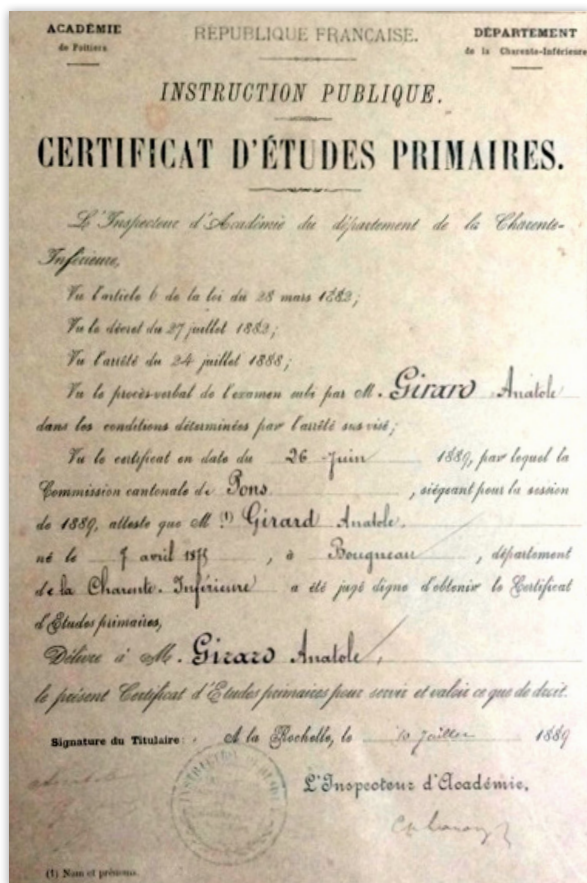 ACADÉMIE
de Poitiers
RÉPUBLIQUE FRANÇAISE.
DÉPARTEMENT
de la Charente-Inférieure
INSTRUCTION PUBLIQUE.
CERTIFICAT D'ÉTUDES PRIMAIRES.
L'Inspecteur d'Académie du département de la Charente-
Inférieure,
Vu l'article 6 de la loi du 28 mars 1882;
Vu le décret du 27 juillet 1882;
Vu l'arrêté du 24 juillet 1888;
Vu le procès-verbal de l'examen subi par M. Girard Anatole
dans les conditions déterminées par l'arrêté sus visé;
Vu le certificat en date du 26 Juin 1889, par lequel la
Commission cantonale de Pons, siégeant pour la session
de 1889, atteste que M (1) Girard Anatole.
né le 7 avril, à Bougneau, département
de la Charente-Inférieure a été jugé digne d'obtenir le Certificat
d'Études primaires,
Délivre à M. Girard Anatole,
le présent Certificat d'Etudes primaires pour servir et valoir ce que de droit.
Signature du Titulaire: A la Rochelle, le 10 Juillet 1889
INSTRUCTION PUBLIQUE
L'Inspecteur d'Académie,
(1) Nom et prénoms.